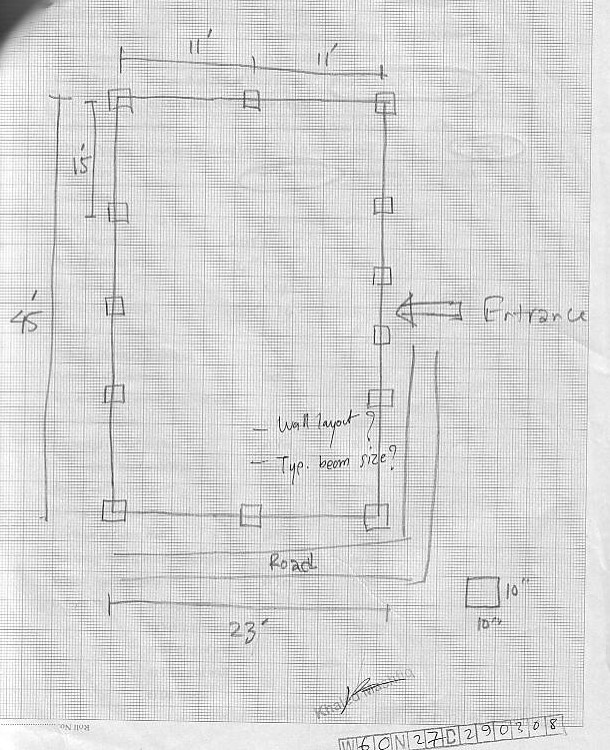 11' 11'
15'
45'
Entrance
- Wall layout ?
- Typ. beam size?
Road
10"
10"
23'
Roll No
W60N27C290308